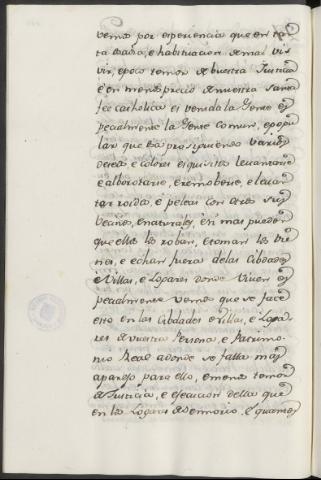 vemos por experiencia que en es
ta osadia, e habituacion de mal vi
vir, e poco temor de vuestra Justicia
e en menosprecio de nuestra Santa
fee catholica es venida la Gente es
pecialmente la Gente comun, e popu
lar que va prosiguiendo varios
deseos, e colores esquisitos levantarse
e alborotarse, e remoberse, e levan
tar roidos, e pelear con otros sus
vecinos, e naturales, en mas pueden
que ellos los roban, e toman los bie
nes, e echan fuera de las Cibdades
e Villas, e Logares donde viven es
pecialmente vemos que se face
esto en las Cibdades e Villas, e Loga
res de vuestra Persona, e Patrimo
nio Real adonde se falla mas
aparejo para ello, e menos temor
de Justicia, e ejecucion della que
en los Logares de Señorio, e quantos